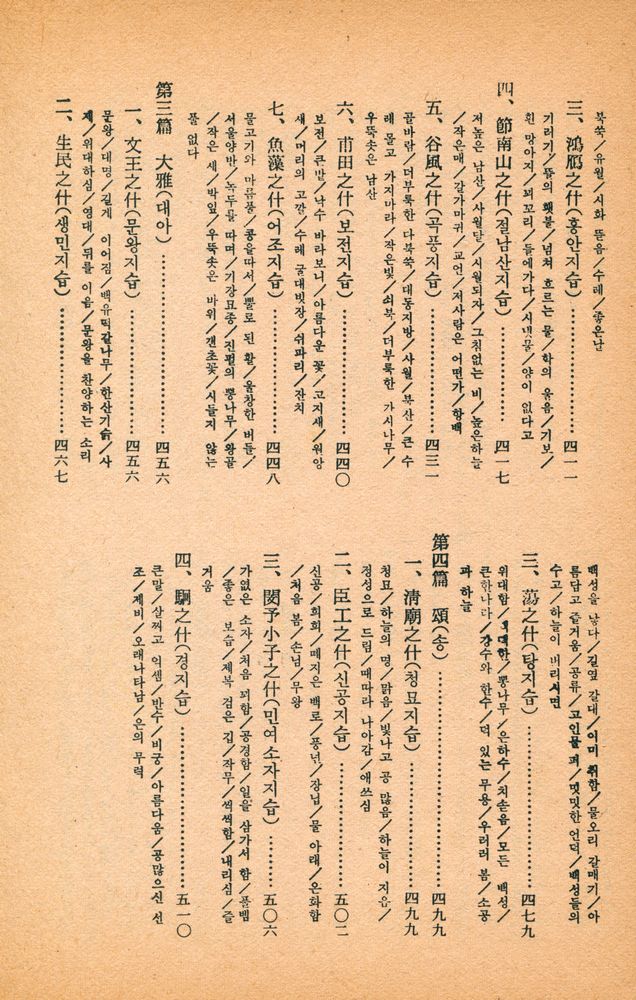 북쪽／유월／시화 뜯음／수레／좋은날
三、鴻鴈之什(홍안지습)……………四一一
기러기／뜰의 횃불／넘쳐 흐르는 물／학의 울음／기보／
흰 망아지／꾀꼬리／들에가다／시냇물／양이 없다고
四、節南山之什(절남산지습)……………四一七
저높은 남산／사월달／시월되자／그침없는 비／높은하늘
／작은매／갈가마귀／교언／저사람은 어떤가／항백
五、谷風之什(곡풍지습)……………四三一
골바람／더부룩한 다북쑥／대동지방／사월／북산／큰 수
레 몰고 가지마라／작은빛／쇠북／더부룩한 가시나무／
우뚝솟은 남산
六、甫田之什(보전지습)……………四四〇
보전／큰밭／낙수 바라보니／아름다운 꽃／고지새／원앙
새／머리의 고깔／수레 굴대빗장／쉬파리／잔치
七、魚藻之什(어조지습)……………四四八
물고기와 마름풀／콩을따서／뿔로 된 활／울창한 버들／
서울양반／녹두를 따며／기장묘종／진펄의 뽕나무／왕골
／작은 새／박잎／우뚝솟은 바위／갠초꽃／시들지 않는
풀 없다
第三篇 大雅(대아)……………四五六
一、文王之什(문왕지습)……………四五六
문왕／대명／길게 이어짐／백유떡갈나무／한산기슭／사
제／위대하심／영대／뒤를 이음／문왕을 찬양하는 소리
二、生民之什(생민지습)……………四六七
백성을 낳다／길옆 갈대／이미 취함／물오리 갈매기／아
름답고 즐거움／공류／고인물 펴／멋밋한 언덕／백성들의
수고／하늘이 버리시면
三、蕩之什(탕지습)……………四七九
위대함／뽕나무／은하수／치솟음／모든 백성／
큰한나라／강수와 한수／덕 있는 무용／우러러 봄／소공
과 하늘
第四篇 頌(송)……………四九九
一、淸廟之什(청묘지습)……………四九九
청묘／하늘의 명／맑음／빛나고 공 많음／하늘이 지음／
정성으로 드림／때따라 나아감／애쓰심
二、臣工之什(신공지습)……………五〇二
신공／희희／떼지은 백로／풍년／장님／물 아래／온화함
／처음 봄／손님／무왕
三、閔予小子之什(민여소자지습)……………五〇六
가엾은 소자／처음 꾀함／공경함／일을 삼가서 함／풀벰
／좋은 보습／제복 검은 깁／작무／씩씩함／내리심／즐
거움
四、駉之什(경지습)……………五一〇
큰말／살찌고 억셈／반수／비궁／아름다움／공많으신 선
조／제비／오래나타남／은의 무력